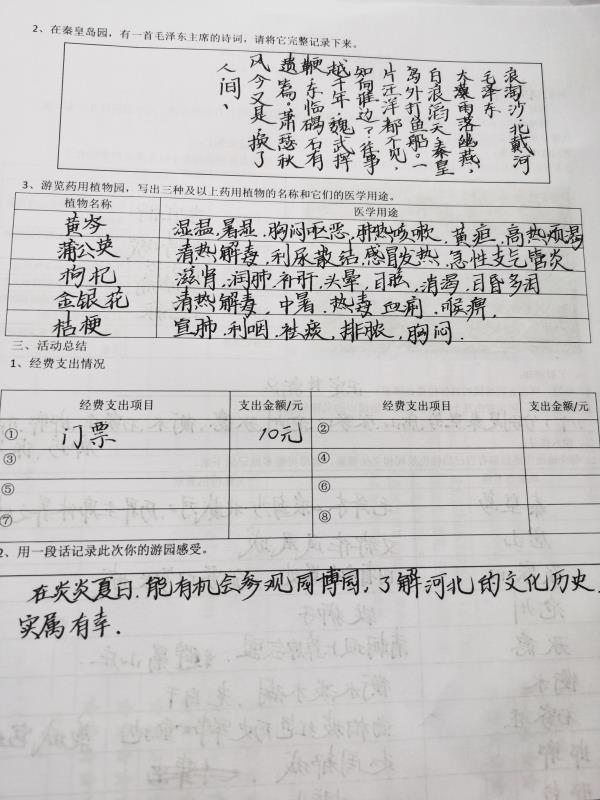 2、在秦皇岛园，有一首毛泽东主席的诗词，请将它完整记录下来。
浪淘沙·北戴河
毛泽东
大雨落幽燕，
白浪滔天，秦皇
岛外打鱼船。一
片汪洋都不见，
知向谁边？往事
越千年，魏武挥
鞭，东临碣石有
遗篇。萧瑟秋
风今又是，换了
人间、
3、游览药用植物园，写出三种及以上药用植物的名称和它们的医学用途。
植物名称 医学用途
黄岑 湿温,暑湿,胸闷呕恶,肺热咳嗽,黄疸,高热烦渴
蒲公英 清热解毒,利尿散结,感冒发热,急性支气管炎
枸杞 滋肾,润肺,补肝,头晕,目眩,消渴,目昏多泪
金银花 清热解毒,中暑,热毒血痢,喉痹,
桔梗 宣肺,利咽,祛痰,排脓,胸闷.
三、活动总结
1、经费支出情况
经费支出项目 支出金额/元 经费支出项目 支出金额/元
① 门票 10元 ②
③ ④
⑤ ⑥
⑦ ⑧
2、用一段话记录此次你的游园感受。
在炎炎夏日,能有机会参观园博园,了解河北的文化历史,
实属有幸.